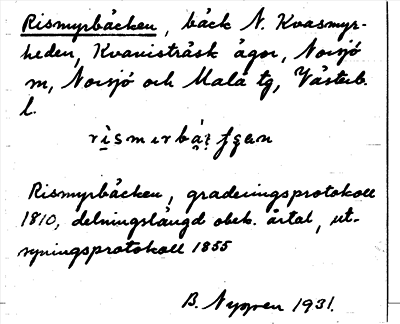 Rismyrbäcken, bäck N. Kvasmyr-
heden, Kvavisträsk ägor, Norsjö
sn, Norsjö och Malå tg, Västerb.
l.
Rismyrbäcken, graderingsprotokoll
1810, delningslängd obek. årtal, ut-
syningsprotokoll 1855
B. Nygren 1931.